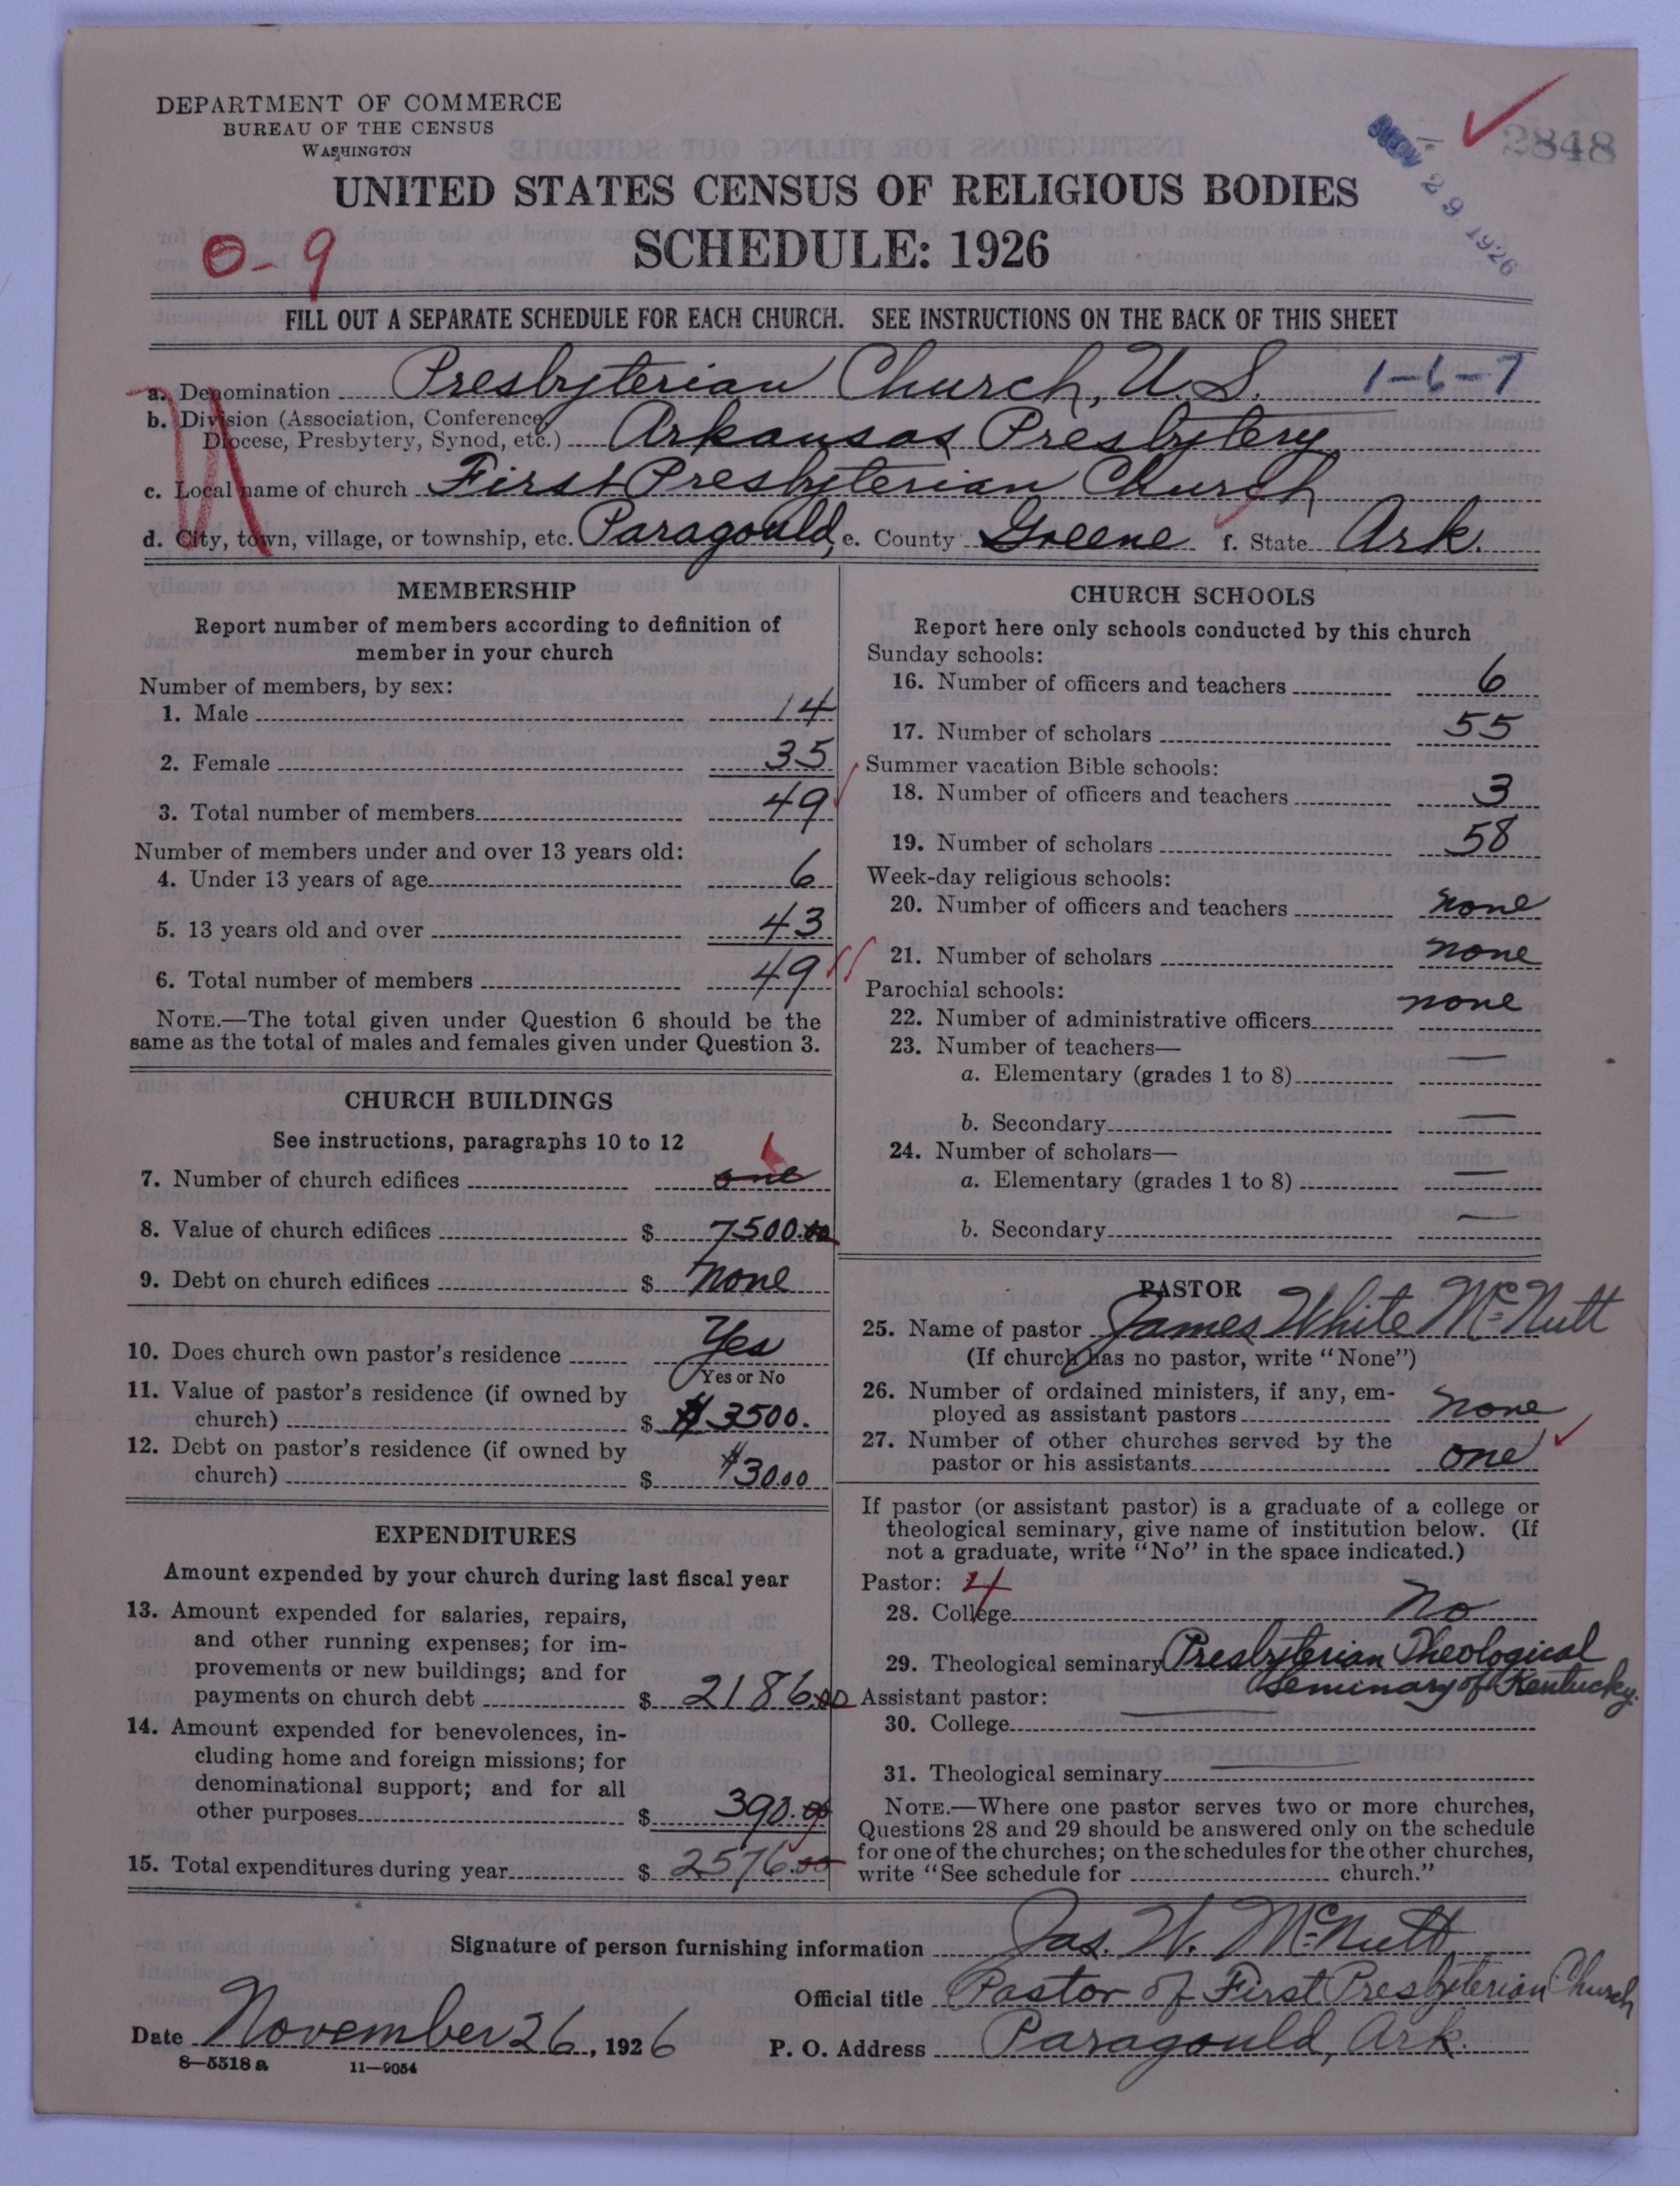 DEPARTMENT OF COMMERCE
BUREAU OF THE CENSUS
WASHINGTON
2848
NOV 29 1926
UNITED STATES CENSUS OF RELIGIOUS BODIES
SCHEDULE: 1926
0-9
FILL OUT A SEPARATE SCHEDULE FOR EACH CHURCH. SEE INSTRUCTIONS ON THE BACK OF THIS SHEET
a. Denomination Presbyterian Church, U.S. 1-6-7
b. Division (Association, Conference,
Diocese, Presbytery, Synod, etc.) Arkansas Presbytery
c. Local name of church First Presbyterian Church
d. City, town, village, or township, etc. Paragould, e. County Greene f. State Ark.
MEMBERSHIP
Report number of members according to definition of
member in your church
Number of members, by sex:
1. Male 14
2. Female 35
3. Total number of members 49
Number of members under and over 13 years old:
4. Under 13 years of age 6
5. 13 years old and over 43
6. Total number of members 49
NOTE.—The total given under Question 6 should be the
same as the total of males and females given under Question 3.
CHURCH BUILDINGS
See instructions, paragraphs 10 to 12
7. Number of church edifices one
8. Value of church edifices $ 7500.00
9. Debt on church edifices $ none
10. Does church own pastor's residence Yes
Yes or No
11. Value of pastor's residence (if owned by
church) $ $3500.
12. Debt on pastor's residence (if owned by
church) $ $30.00
EXPENDITURES
Amount expended by your church during last fiscal year
13. Amount expended for salaries, repairs,
and other running expenses; for im-
provements or new buildings; and for
payments on church debt $ 2186.00
14. Amount expended for benevolences, in-
cluding home and foreign missions; for
denominational support; and for all
other purposes $ 390.00
15. Total expenditures during year $ 2576.00
CHURCH SCHOOLS
Report here only schools conducted by this church
Sunday schools:
16. Number of officers and teachers 6
17. Number of scholars 55
Summer vacation Bible schools:
18. Number of officers and teachers 3
19. Number of scholars 58
Week-day religious schools:
20. Number of officers and teachers none
21. Number of scholars none
Parochial schools:
22. Number of administrative officers none
23. Number of teachers—
a. Elementary (grades 1 to 8) —
b. Secondary —
24. Number of scholars—
a. Elementary (grades 1 to 8) —
b. Secondary —
PASTOR
25. Name of pastor James White McNutt
(If church has no pastor, write "None")
26. Number of ordained ministers, if any, em-
ployed as assistant pastors none
27. Number of other churches served by the
pastor or his assistants one
If pastor (or assistant pastor) is a graduate of a college or
theological seminary, give name of institution below. (If
not a graduate, write "No" in the space indicated.)
Pastor: 4
28. College No
29. Theological seminary Presbyterian Theological
Seminary of Kentucky.
Assistant pastor:
30. College —
31. Theological seminary —
NOTE.—Where one pastor serves two or more churches,
Questions 28 and 29 should be answered only on the schedule
for one of the churches; on the schedules for the other churches,
write "See schedule for church."
Signature of person furnishing information Jas. W. McNutt
Official title Pastor of First Presbyterian Church
Date November 26, 1926 P. O. Address Paragould, Ark.
8—5518 a 11—9054